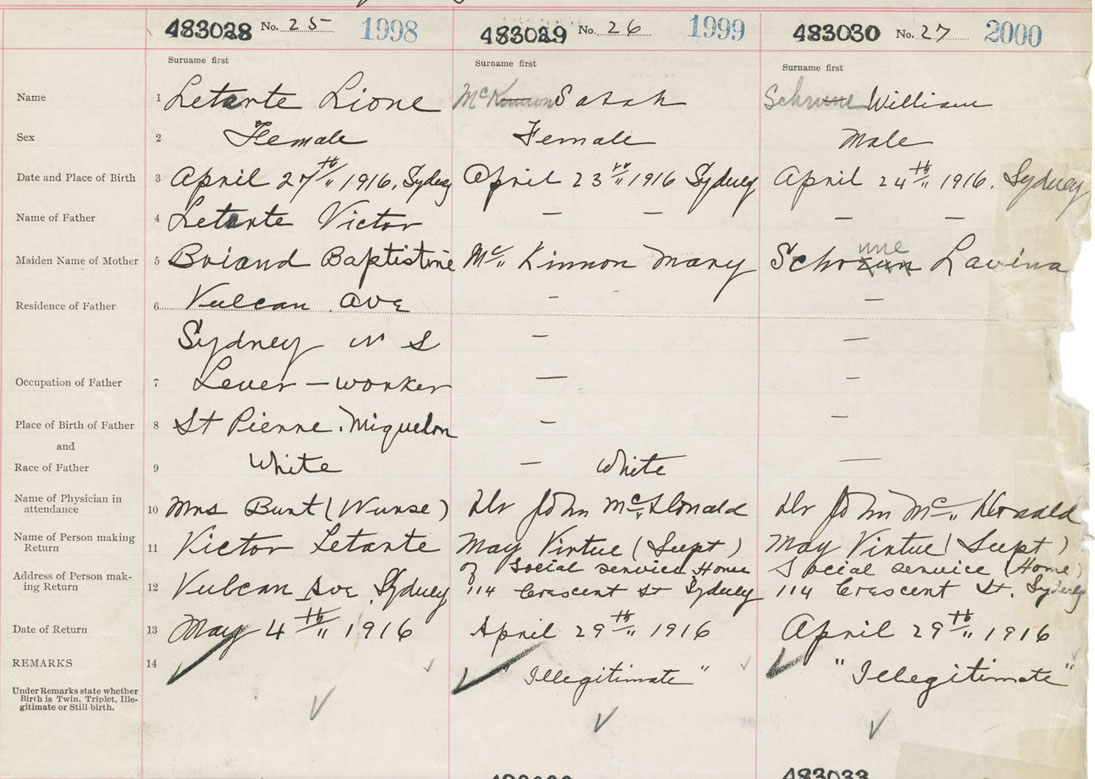 483028 No. 25 1998 483029 No. 26 1999 483030 No. 27 2000
Surname first Surname first Surname first
Name 1 Letarte Lione McKinnon Sarah William
Sex 2 Female Female Male
Date and Place of Birth 3 April 27th 1916, Sydney April 23rd 1916 Sydney April 24th 1916. Sydney
Name of Father 4 Letarte Victor — — — —
Maiden Name of Mother 5 Briand Baptistine Mc Kinnon Mary Lavina
Residence of Father 6 Vulcan Ave — — —
Sydney N S — —
Occupation of Father 7 Lever-worker — —
Place of Birth of Father 8 St Pierre. Miquelon — —
and
Race of Father 9 White — White —
Name of Physician in
attendance 10 Mrs Bunt (Nurse) Dr John McDonald Dr John Mc Donald
Name of Person making
Return 11 Victor Letarte May Virtue (Supt) May Virtue (Supt)
of Social service Home Social service (Home)
Address of Person mak-
ing Return 12 Vulcan Ave Sydney 114 Crescent St Sydney 114 Crescent St. Sydney
Date of Return 13 May 4th 1916 April 29th 1916 April 29th 1916
REMARKS 14 "Illegitimate" "Illegitimate"
Under Remarks state whether
Birth is Twin, Triplet, Ille-
gitimate or Still birth.
483033